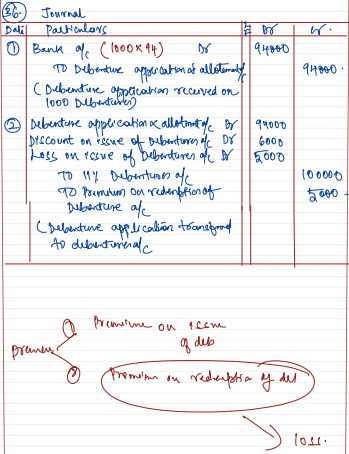 36. Journal
Date Particulars Dr Cr.
① Bank a/c (1000×94) Dr 94000
To Debenture application & allotment a/c 94000.
(Debenture application received on
1000 Debentures)
② Debenture application & allotment a/c Dr 94000
Discount on issue of Debentures a/c Dr 6000
Loss on issue of Debentures a/c Dr 5000
To 11% Debentures a/c 100000
To Premium on redemption of 5000
Debenture a/c
(Debenture application transferred
to debentures a/c
① Premium on issue
of deb
Premium
② Premium on redemption of deb
loss.